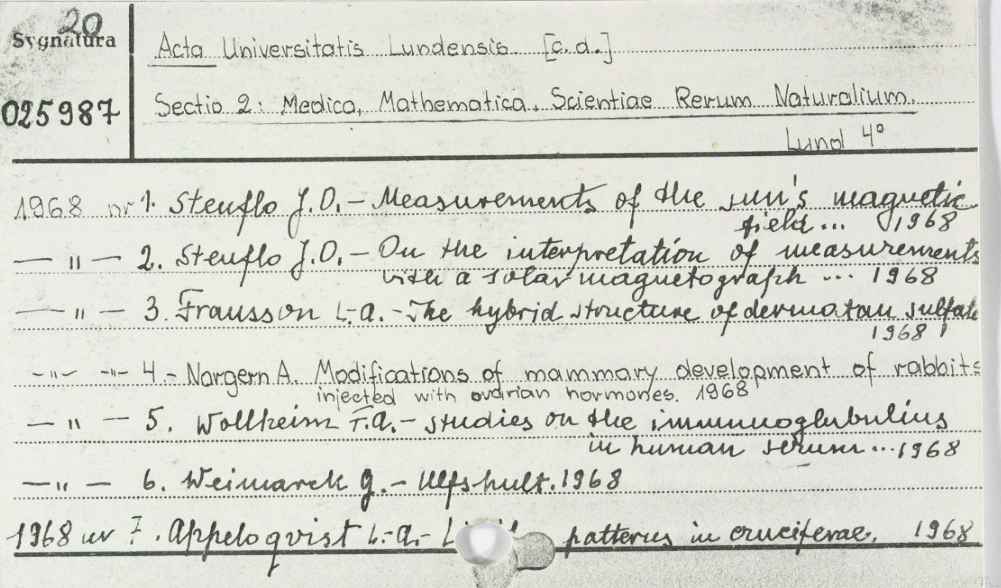 20
Sygnatura
025987
Acta Universitatis Lundensis [c.d.]
Sectio 2: Medica, Mathematica, Scientiae Rerum Naturalium.
Lund 4°
1968 nr 1. Stenflo J.O. – Measurements of the sun's magnetic
field... 1968
— " — 2. Stenflo J.O. – On the interpretation of measurements
with a solar magnetograph ... 1968
— " — 3. Fransson L-a. – The hybrid structure of dermatan sulfate
1968
— " — — " — 4. – Norgern A. Modifications of mammary development of rabbits
injected with ovarian hormones. 1968
— " — 5. Wollheim F.a. – studies on the immunoglobulins
in human serum ... 1968
— " — 6. Weimarck G. – Ulfshult. 1968
1968 nr 7. Appeloqvist L.-a. – patterns in cruciferae. 1968